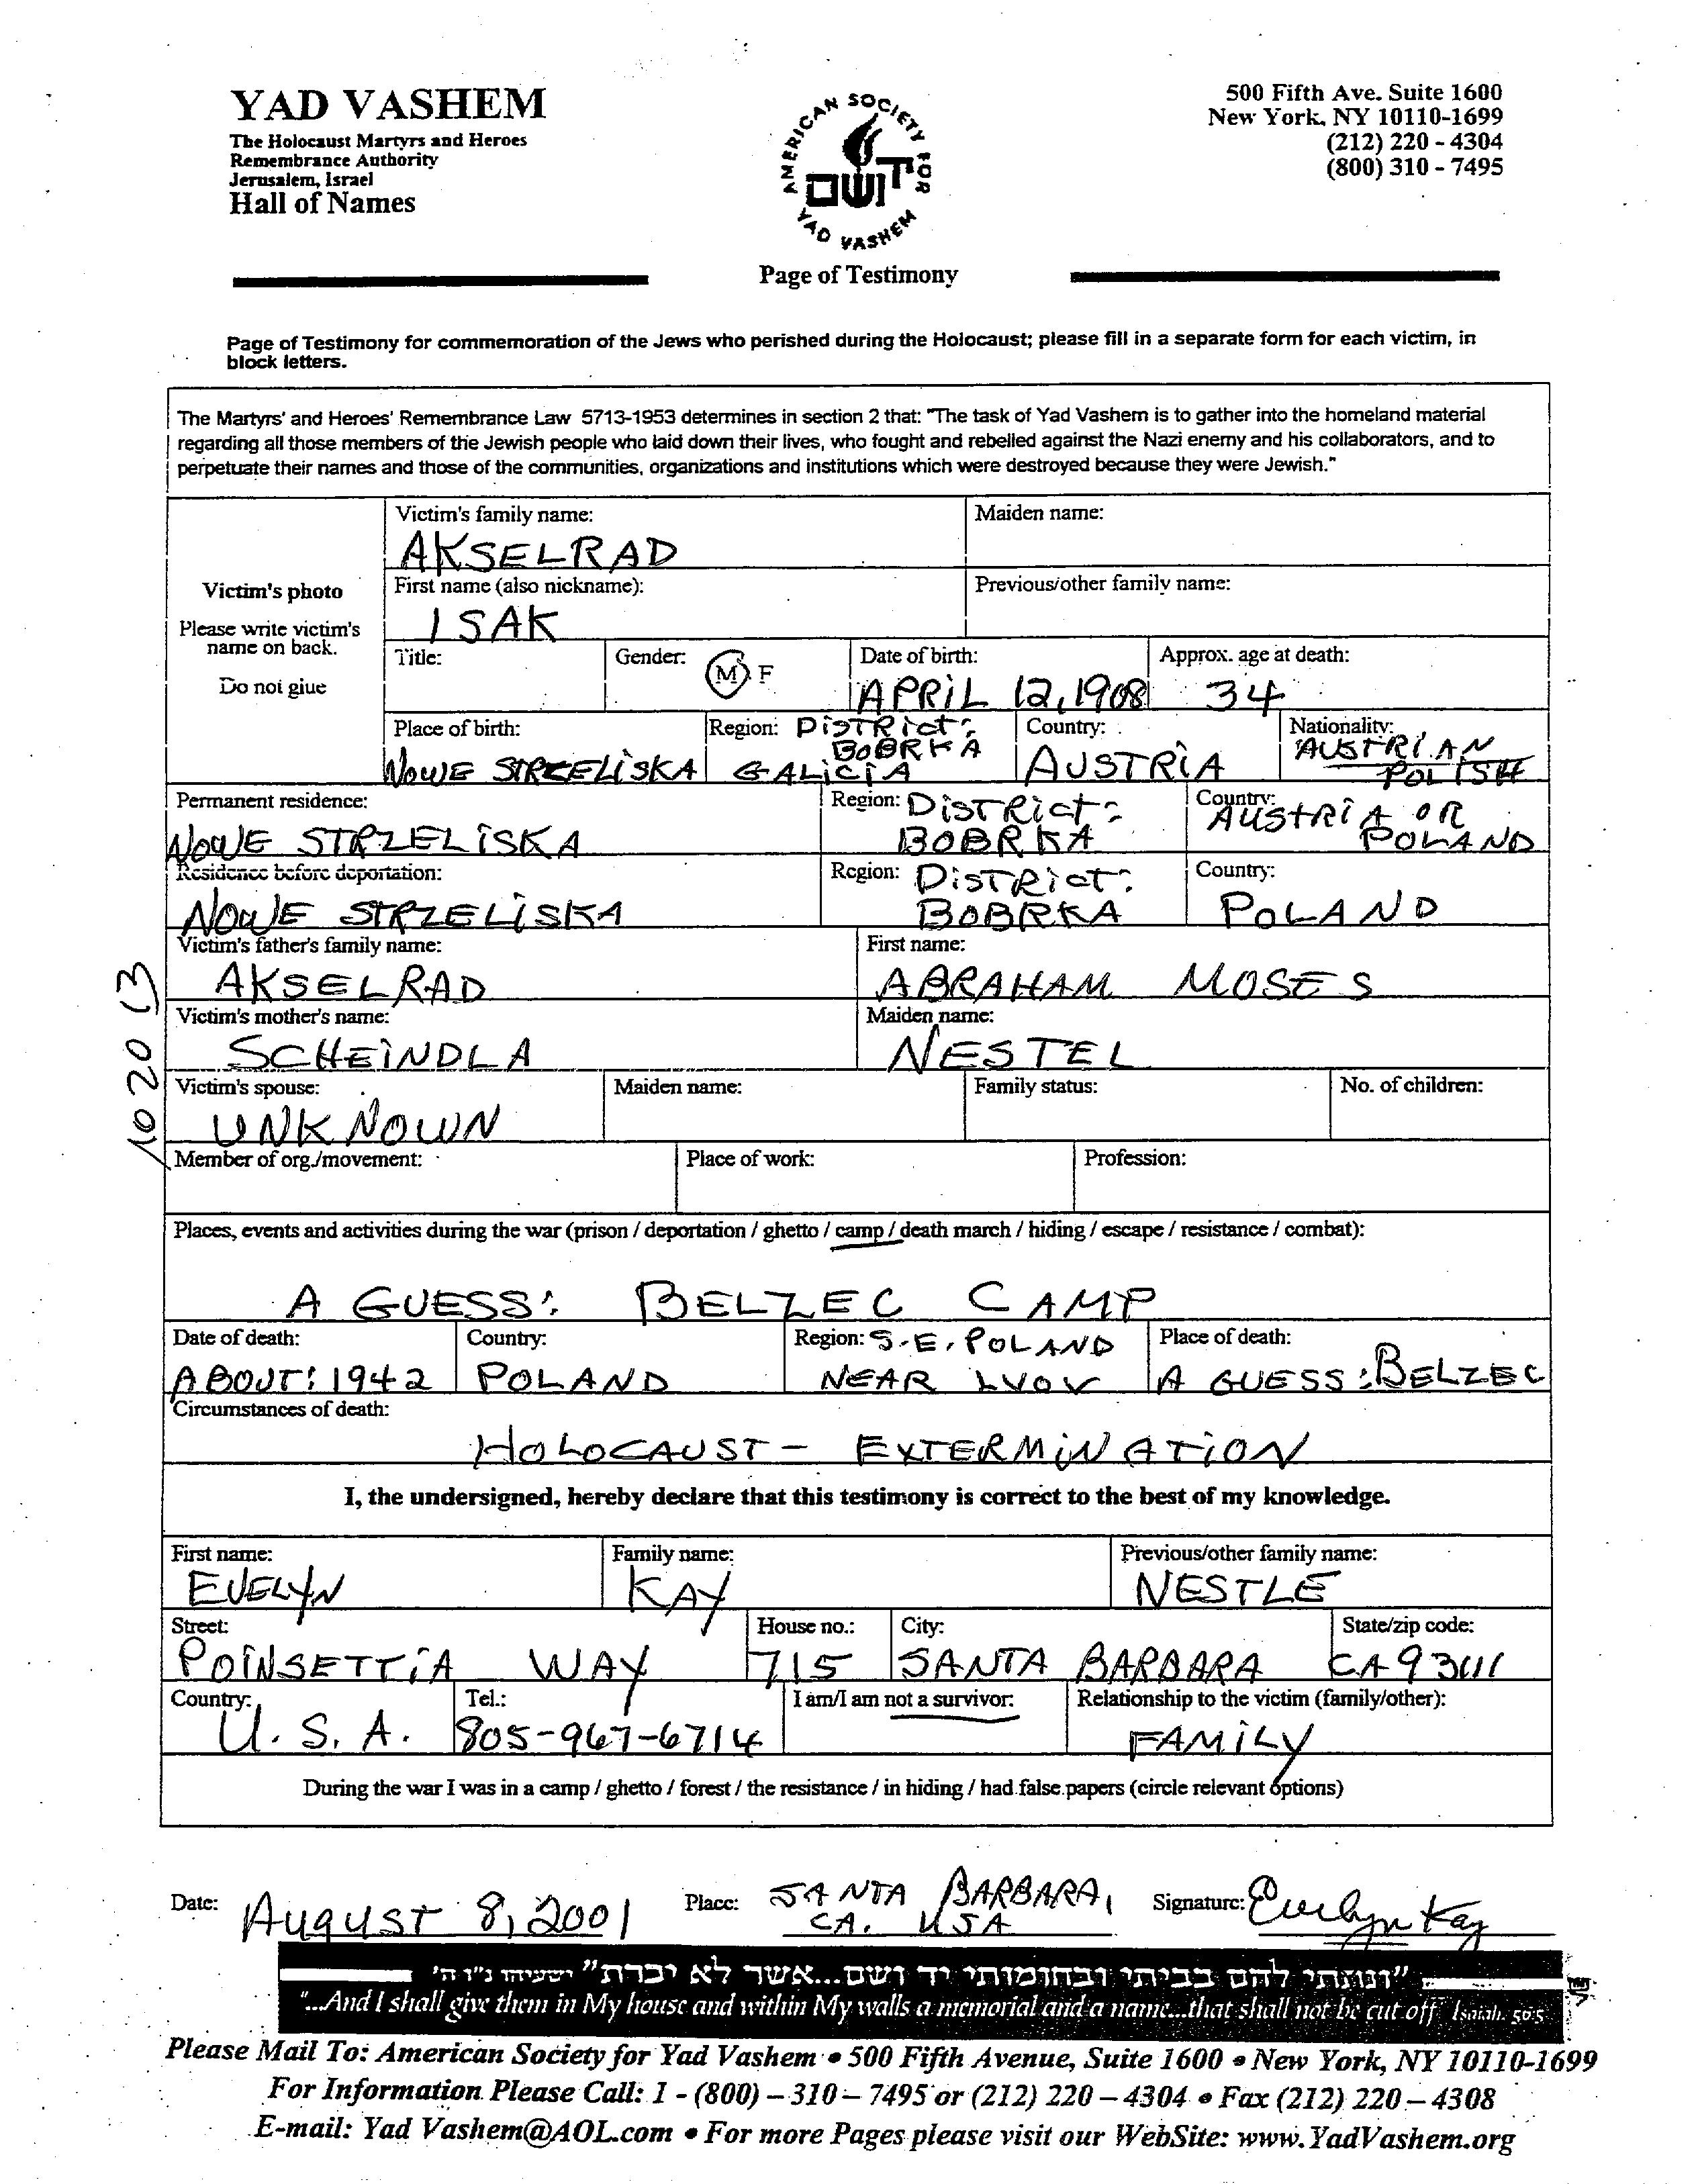 YAD VASHEM
The Holocaust Martyrs and Heroes
Remembrance Authority
Jerusalem, Israel
Hall of Names
AMERICAN SOCIETY FOR
YAD VASHEM
יד ושם
Page of Testimony
500 Fifth Ave. Suite 1600
New York, NY 10110-1699
(212) 220 - 4304
(800) 310 - 7495
Page of Testimony for commemoration of the Jews who perished during the Holocaust; please fill in a separate form for each victim, in
block letters.
The Martyrs' and Heroes' Remembrance Law 5713-1953 determines in section 2 that: "The task of Yad Vashem is to gather into the homeland material
regarding all those members of the Jewish people who laid down their lives, who fought and rebelled against the Nazi enemy and his collaborators, and to
perpetuate their names and those of the communities, organizations and institutions which were destroyed because they were Jewish."
Victim's photo
Please write victim's
name on back.
Do not glue
Victim's family name: Maiden name:
AKSELRAD
First name (also nickname): Previous/other family name:
ISAK
Title: Gender: M F Date of birth: Approx. age at death:
APRIL 12, 1908 34
Place of birth: Region: DISTRICT: Country: Nationality:
BOBRKA AUSTRIAN
NOWE STRZELISKA GALICIA AUSTRIA POLISH
Permanent residence: Region: DISTRICT: Country:
AUSTRIA OR
NOWE STRZELISKA BOBRKA POLAND
Residence before deportation: Region: DISTRICT: Country:
NOWE STRZELISKA BOBRKA POLAND
Victim's father's family name: First name:
AKSELRAD ABRAHAM MOSES
Victim's mother's name: Maiden name:
SCHEINDLA NESTEL
Victim's spouse: Maiden name: Family status: No. of children:
UNKNOWN
Member of org./movement: Place of work: Profession:
Places, events and activities during the war (prison / deportation / ghetto / camp / death march / hiding / escape / resistance / combat):
A GUESS: BELZEC CAMP
Date of death: Country: Region: S.E. POLAND Place of death:
ABOUT: 1942 POLAND NEAR LVOV A GUESS: BELZEC
Circumstances of death:
HOLOCAUST - EXTERMINATION
I, the undersigned, hereby declare that this testimony is correct to the best of my knowledge.
First name: Family name: Previous/other family name:
EVELYN KAY NESTLE
Street: House no.: City: State/zip code:
POINSETTIA WAY 715 SANTA BARBARA CA 93111
Country: Tel.: I am/I am not a survivor: Relationship to the victim (family/other):
U.S.A. 805-967-6714 FAMILY
During the war I was in a camp / ghetto / forest / the resistance / in hiding / had false papers (circle relevant options)
Date: AUGUST 8, 2001 Place: SANTA BARBARA, Signature: Evelyn Kay
CA. USA
"ונתתי להם בביתי ובחומותי יד ושם...אשר לא יכרת" ישעיהו נ"ו ה'
"...And I shall give them in My house and within My walls a memorial and a name...that shall not be cut off" Isaiah. 56:5
Please Mail To: American Society for Yad Vashem • 500 Fifth Avenue, Suite 1600 • New York, NY 10110-1699
For Information Please Call: 1 - (800) – 310 – 7495 or (212) 220 – 4304 • Fax (212) 220 – 4308
E-mail: Yad Vashem@AOL.com • For more Pages please visit our WebSite: www.YadVashem.org